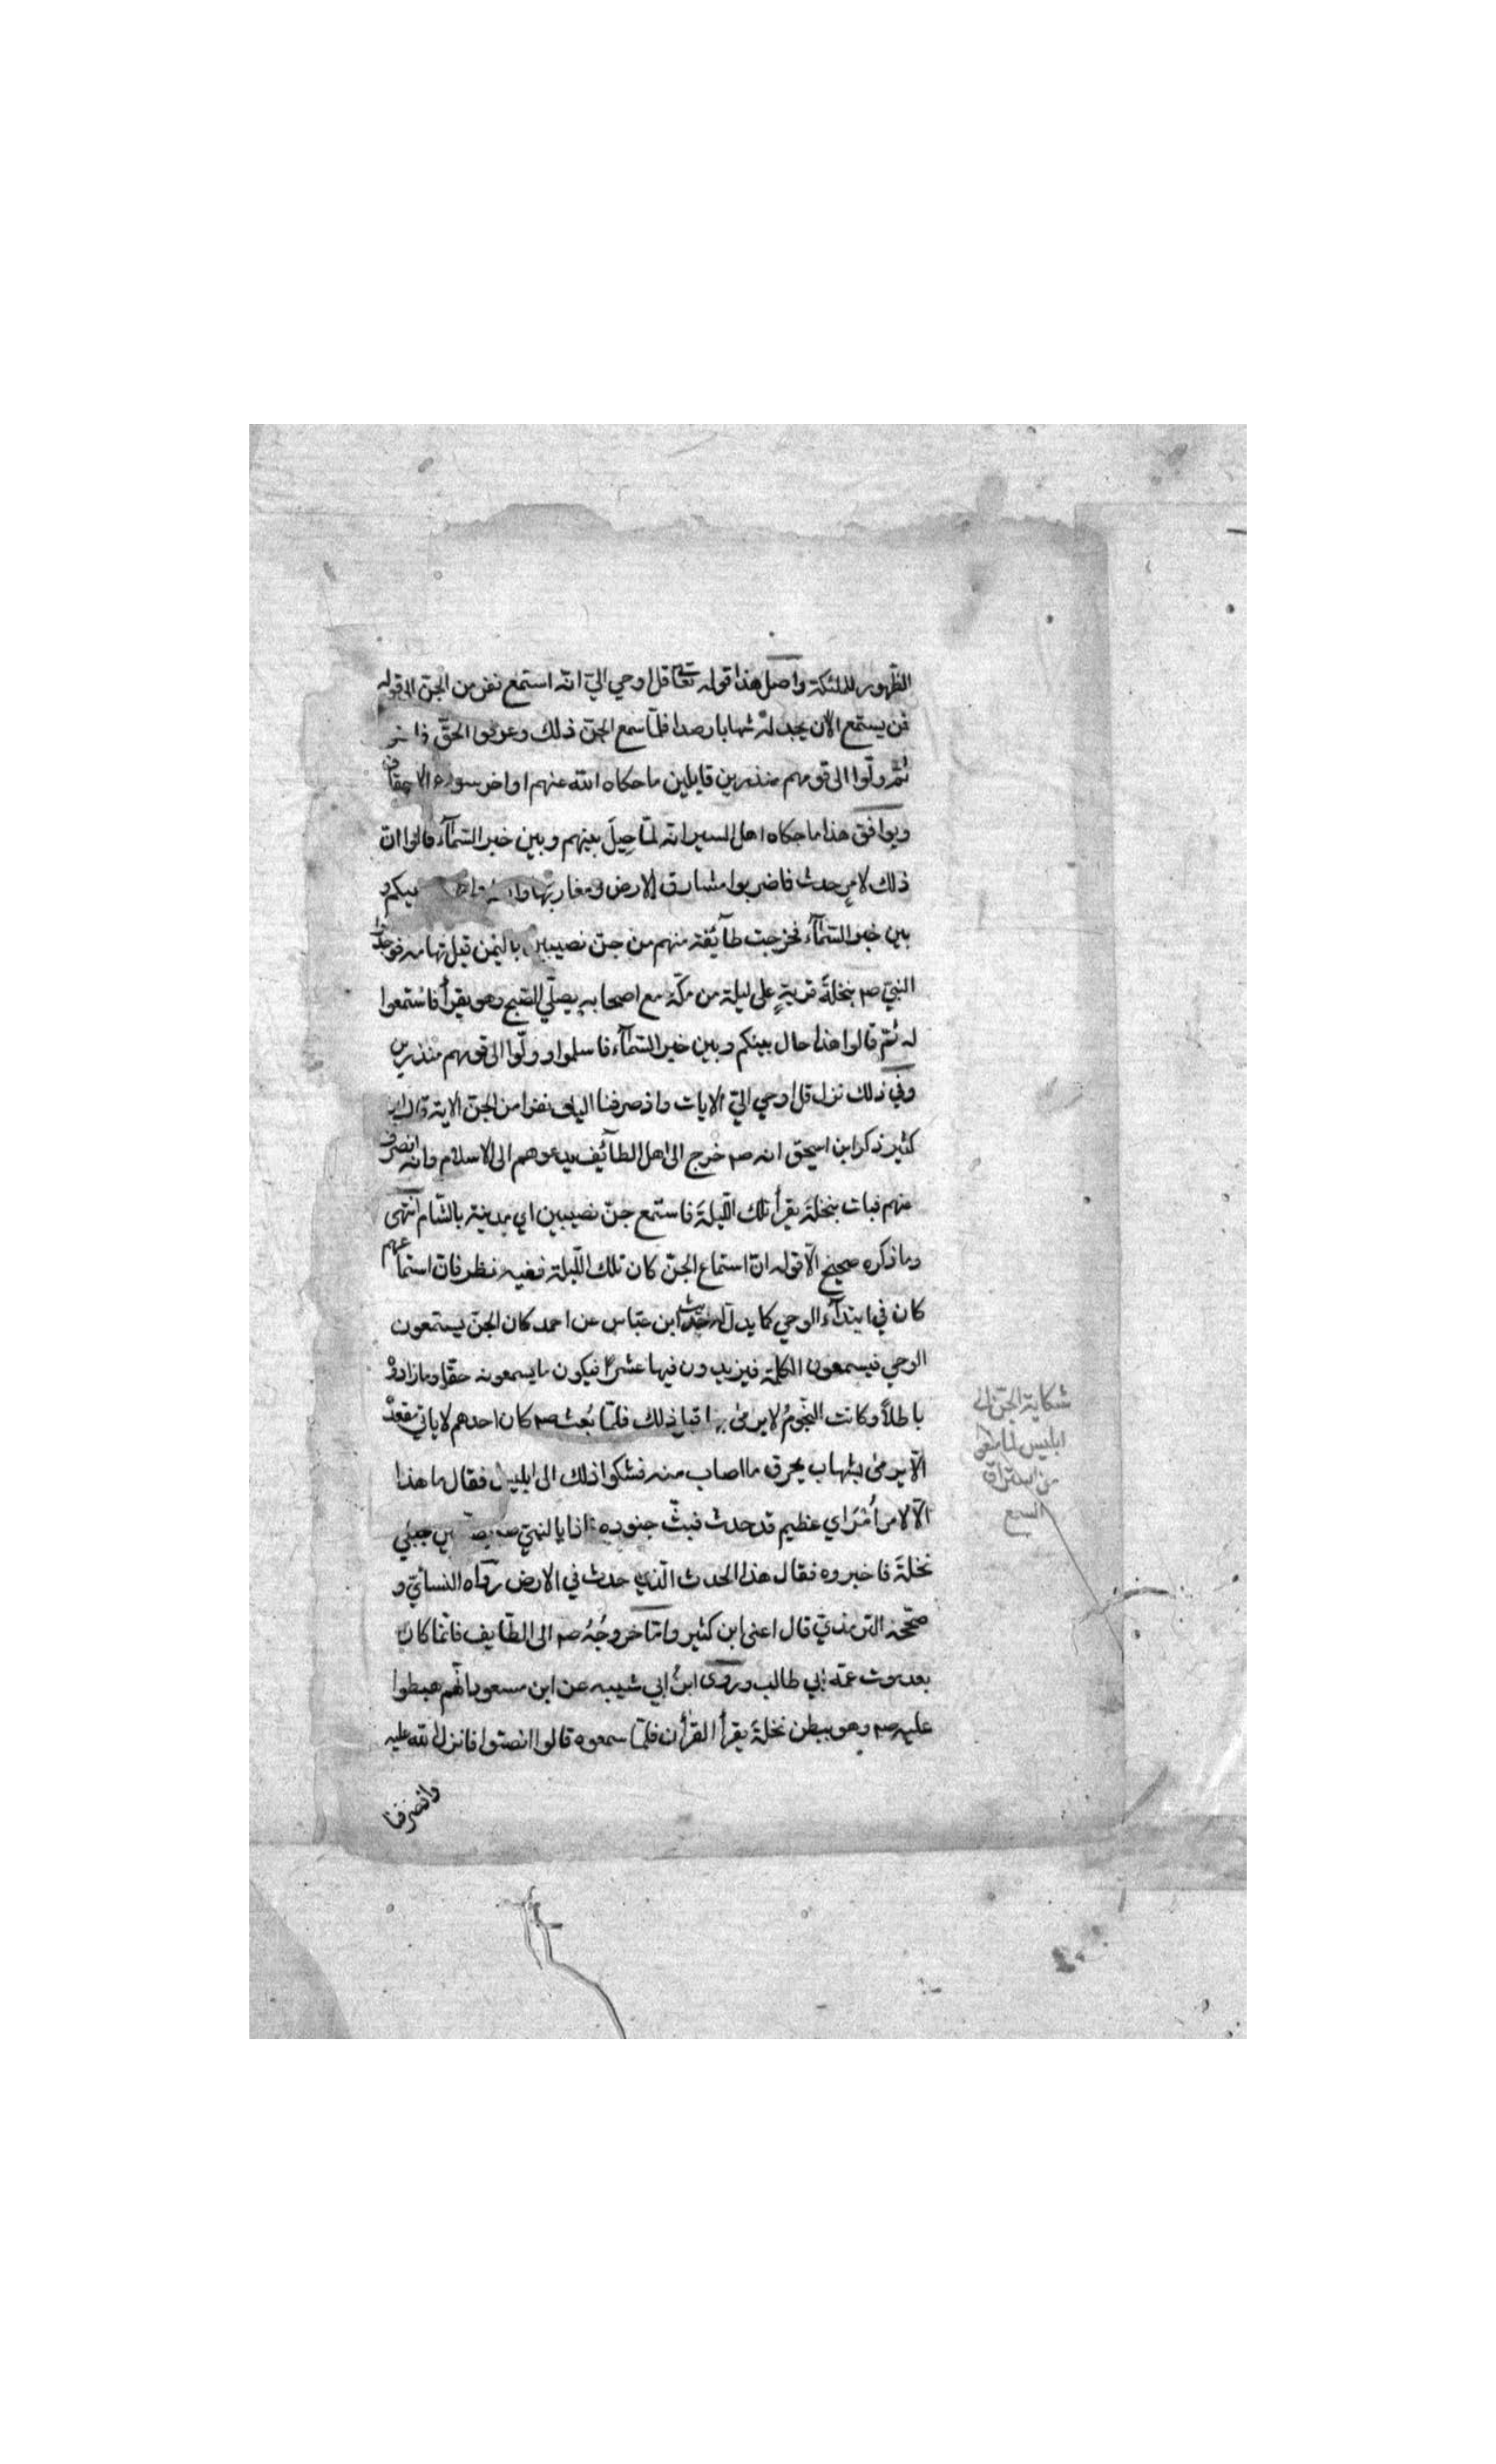 الظهور للملئكة واصل هذا قوله تعالى قل اوحي اليّ انّه استمع نفر من الجنّ الى قوله
فمن يستمع الآن يجد لهُ شهابا رصدا فلمّا سمع الجنّ ذلك وعرفوا الحقّ
ثمّ ولّوا الى قومهم منذرين قايلين ما حكاه الله عنهم اواخر سورة الاحقاف
ويوافق هذا ما حكاه اهل السير انّه لمّا حِيلَ بينهم وبين خبر السّمآء قالوا انّ
ذلك لامرٍ حدث فاضربوا مشارق الارض ومغاربها بينكم و
بين خبر السّمآء فخرجت طآئفة منهم من جنّ نصيبين باليمن قبل تهامه فوجدوا
النبيّ صم بنخلةَ قريةٍ على ليلة من مكّة مع اصحابه يصلّي الصّبح وهو يقرأ فاستمعوا
له ثمّ قالوا هذا حال بينكم وبين خبر السّمآء فاسلموا وولّوا الى قومهم منذرين
وفي ذلك نزل قل اوحي اليّ الايات واذ صرفنا اليك نفرا من الجنّ الاية قال ابن
كثير ذكر ابن اسحق انه صم خرج الى اهل الطآئف يدعوهم الى الاسلام وانه انصرف
عنهم فبات بنخلةَ يقرأ تلك اللّيلةَ فاستمع جنّ نصيبين اي مدينة بالشّام انتهى
وما ذكره صحيح الّا قوله انّ استماع الجنّ كان تلك اللّيلة ففيه نظر فانّ استماعهم
كان في ابتدآء الوحي كما يدلّ له حديث ابن عبّاس عن احمد كان الجنّ يستمعون
الوحي فيسمعون الكلمة فيزيدون فيها عشرًا فيكون ما يسمعونه حقّا وما زادوْ
باطلاً وكانت النّجومُ لا يرمىٰ بها قبل ذلك فلمّا بُعث صم كان احدهم لا ياتي مقعدهْ
الّا يرمىٰ بشهاب يحرق ما اصاب منه فشكوا ذلك الى ابليس فقال ما هذا
الّا لامرٍ أُمْرَ اي عظيم قد حدث فبثّ جنوده فاذا بالنبيّ صم بين جبلي
نخلةَ فاخبروه فقال هذا الحدث الّذي حدث في الارض رواه النسائيّ و
صحّحه الترمذيّ قال اعنى ابن كثير وامّا خروجُهُ صم الى الطّايف فانّما كان
بعد موت عمّه ابي طالب وروى ابنُ ابي شيبه عن ابن مسعود انّهم هبطوا
عليه صم وهو ببطن نخلةَ يقرأ القرأن فلمّا سمعوه قالوا انصتوا فانزل الله عليه
شكاية الجنّ الى
ابليس لما منعوا
من استراق
السمع